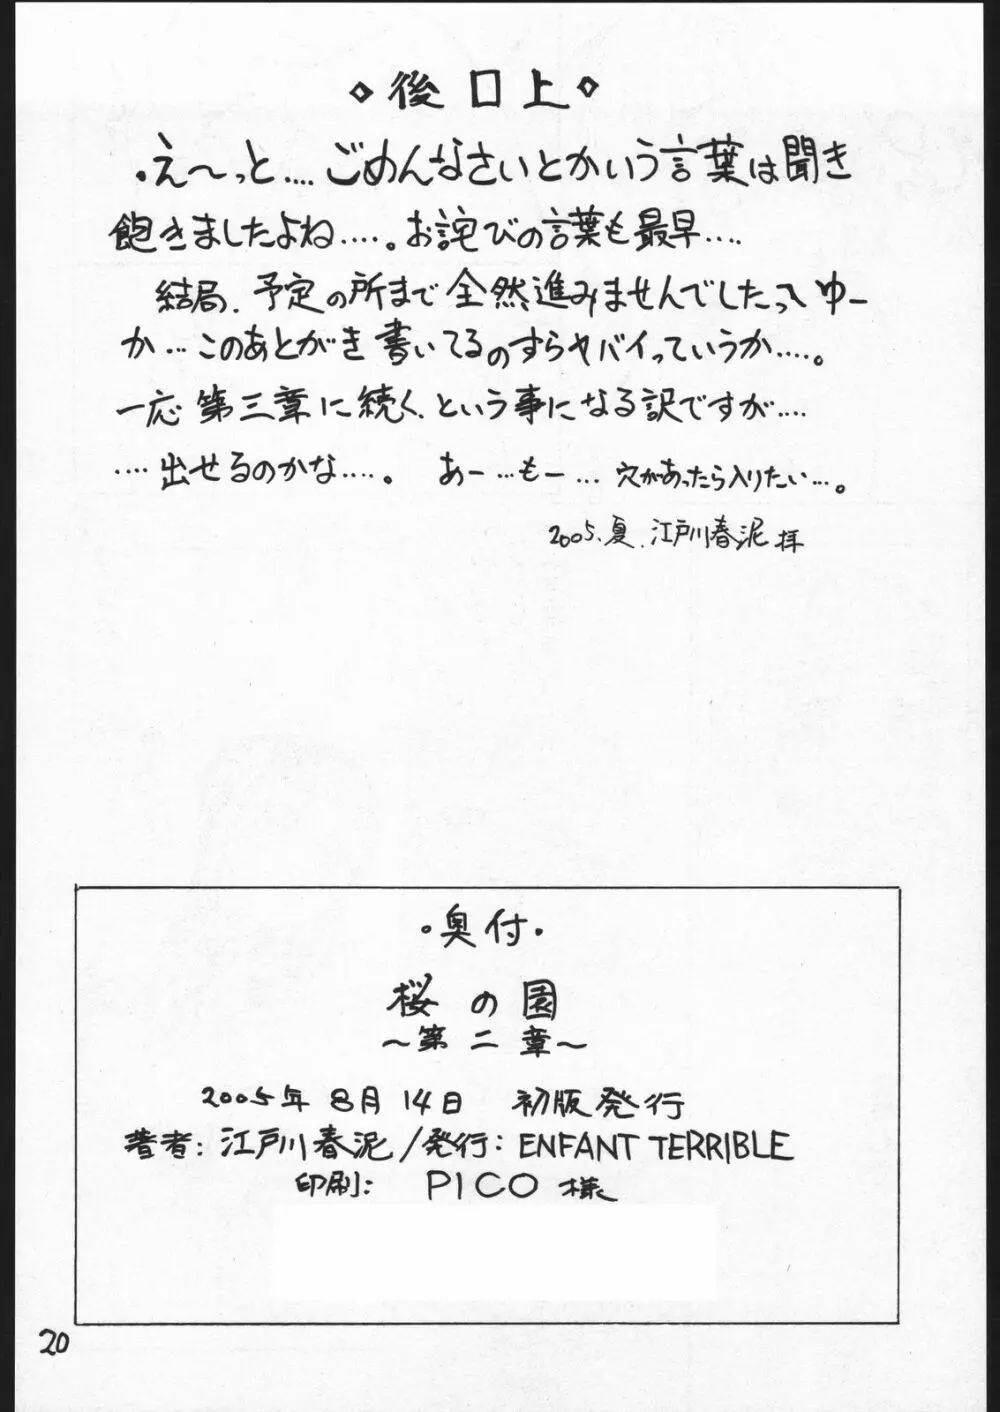 ◇後口上◇
・え〜っと....ごめんなさいとかいう言葉は聞き
飽きましたよね....。お詫びの言葉も最早....
結局、予定の所まで全然進みませんでしたってゆー
か...このあとがき書いてるのすらヤバイっていうか....。
一応第三章に続く、という事になる訳ですが....
....出せるのかな....。 あー...もー...穴があったら入りたい...。
2005.夏.江戸川春泥 拝
・奥付・
桜の園
〜第二章〜
2005年8月14日 初版発行
著者:江戸川春泥/発行:ENFANT TERRIBLE
印刷: PICO様
20